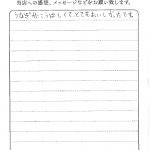 当店への感想、メッセージなどをお願い致します。
うなぎがこうばしくて、とてもおいしかったです